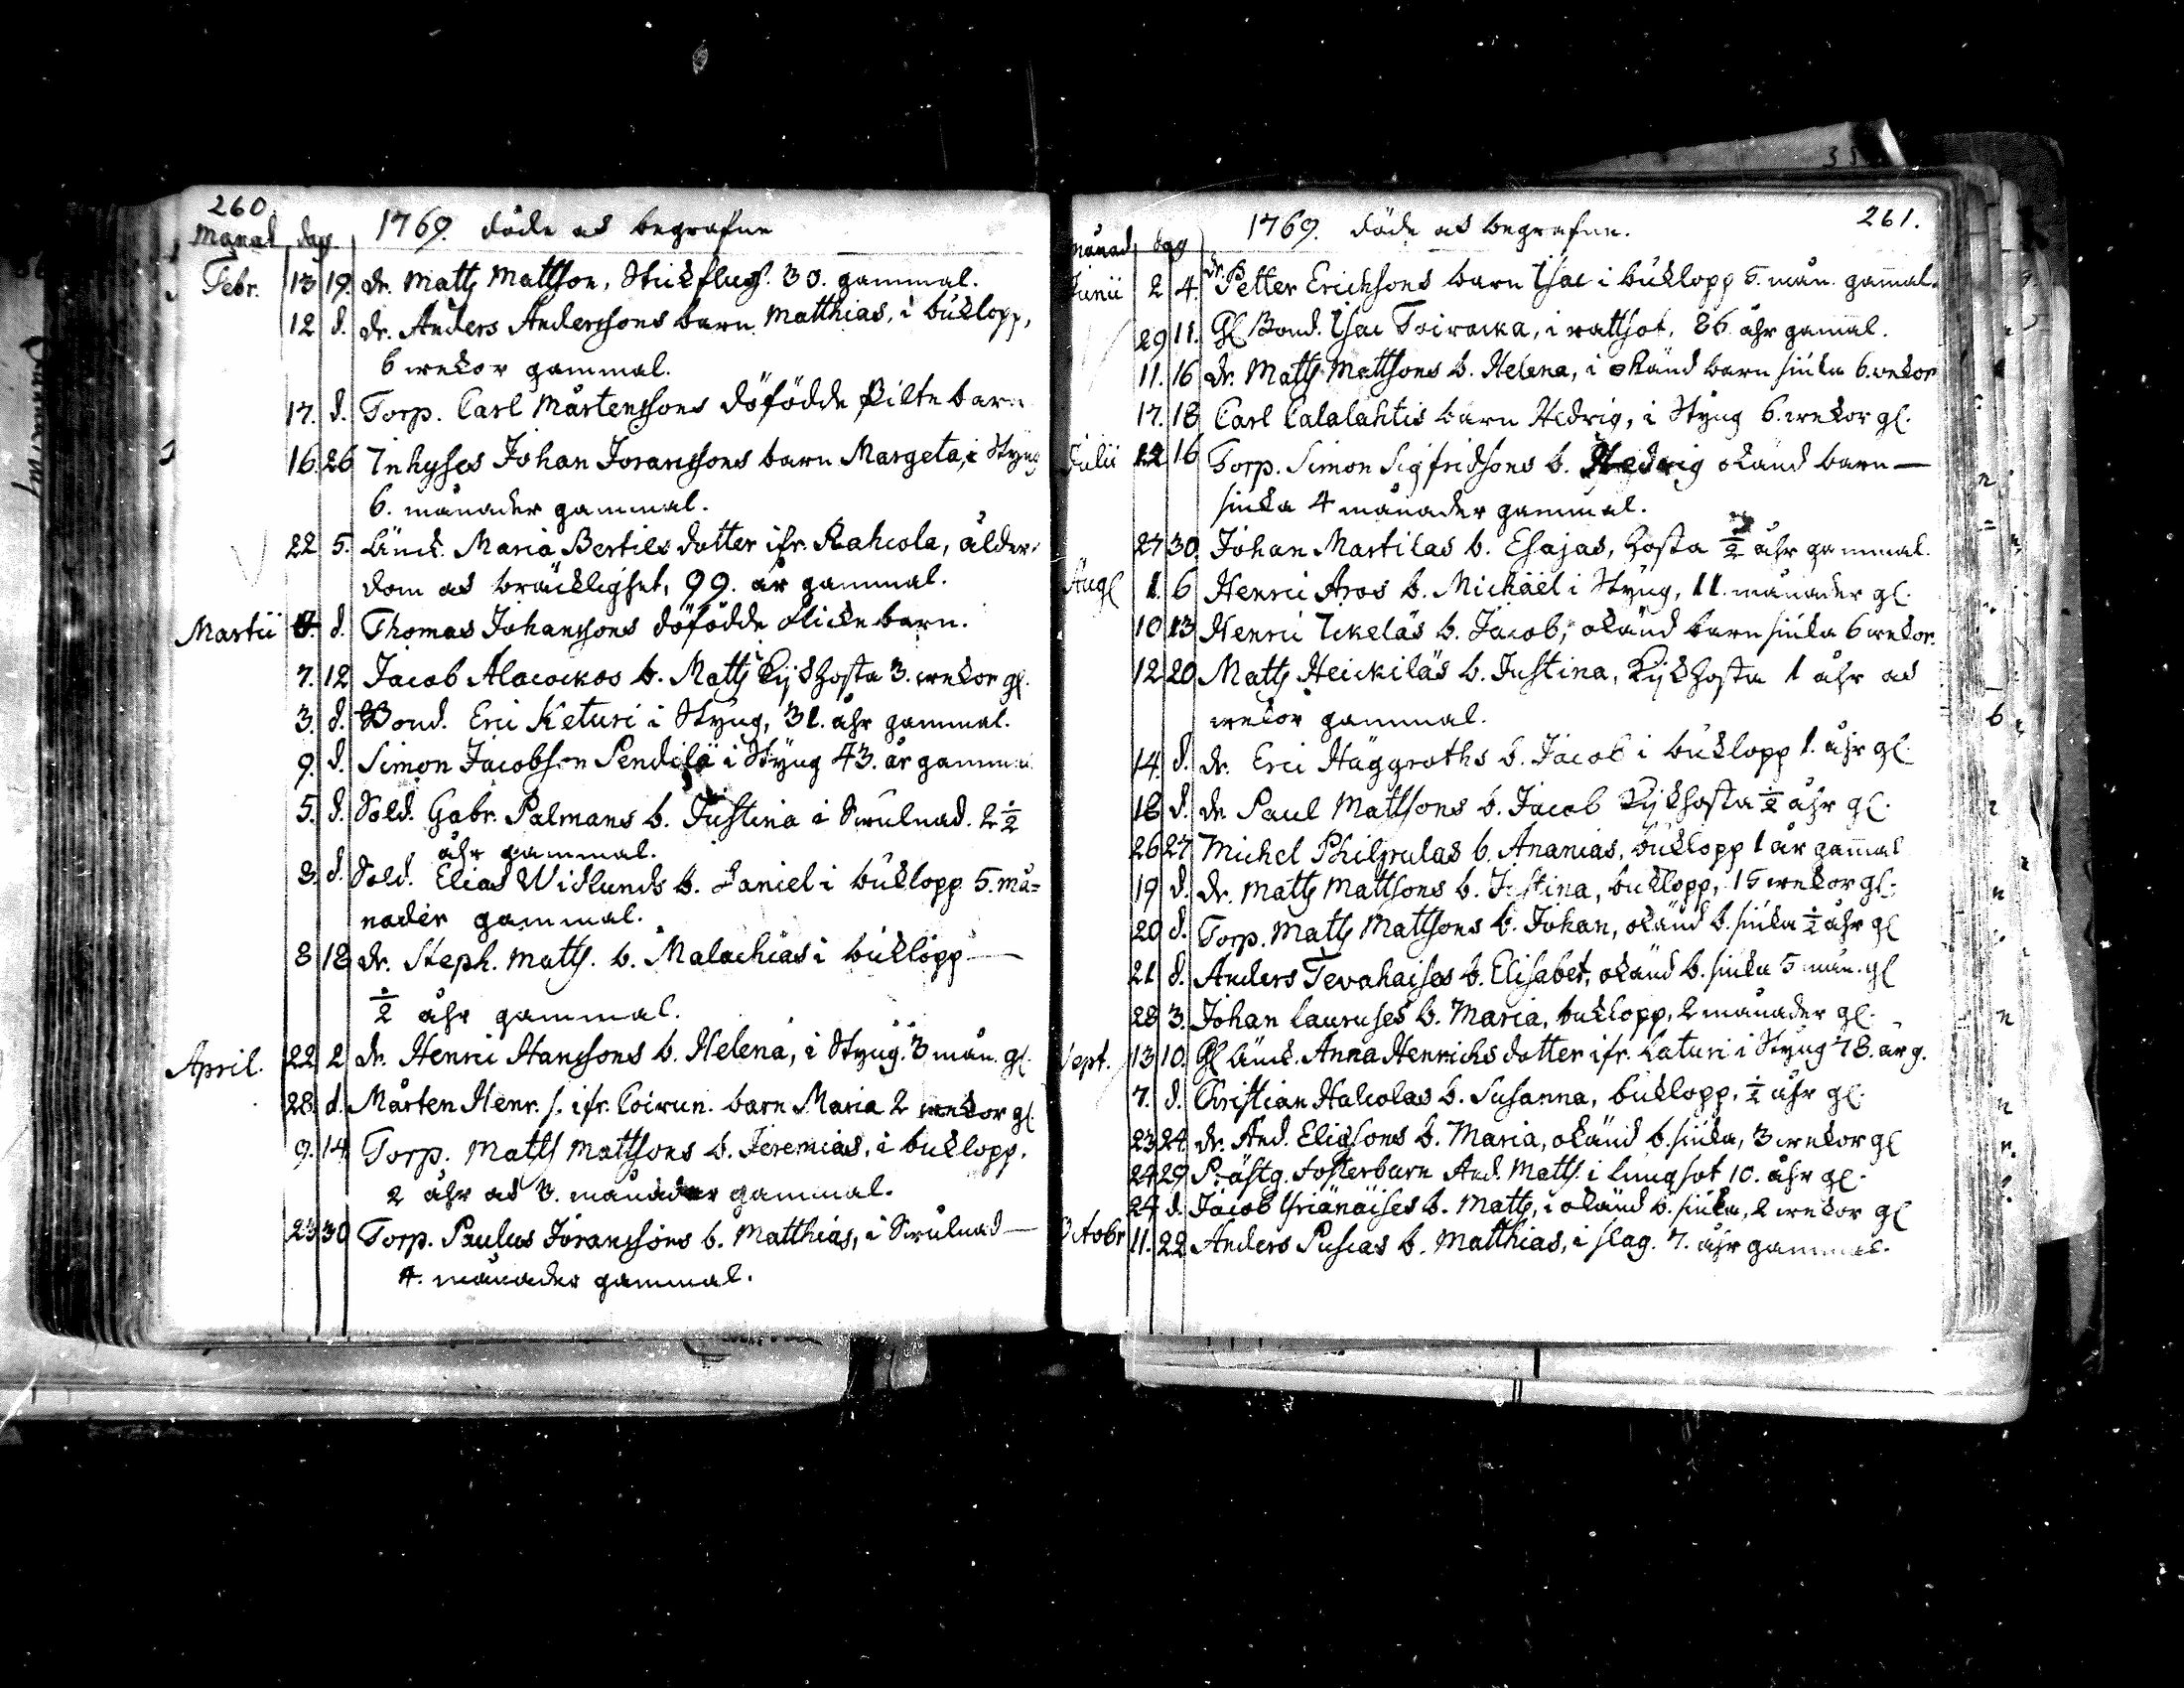 260
Månad dag. 1769. döde och begrafne
Febr. 13 19. dr. Matts Mattson, Stickflusz. 30. gammal.
12 d. dr. Anders Anderssons barn Matthias, i buklopp,
6 wekor gammal.
17. d. Torp. Carl Mårtenssons döfödde Piltebarn
16 26 Inhyses Johan Joranssons barn Margeta, i Styng
6. månader gammal.
22 5. Änck. Maria Bertils dotter ifr. Rahcola, ålder-
dom och bräcklighet, 99. år gammal.
Martii 8. d. Thomas Johanssons döfödde flickebarn.
7. 12 Jacob Alacockos b. Matts Kijkhosta 3. wekor gl.
3. d. Bond. Eric Keturi i Styng, 31. åhr gammal.
9. d. Simon Jacobson Pendilä i Styng 43. år gammal
5. d. Sold. Gabr. Palmans b. Justina i Swulnad. 2 1/2
åhr gammal.
8. d. Sold. Elias Widlunds b. Daniel i bucklopp 5. må=
nader gammal.
8 18 dr. Steph. Matts. b. Malachias i bucklopp —
1/2 åhr gammal.
April. 22 2 dr. Henric Hanssons b. Helena, i Styng. 3 mån. gl.
28. d. Mårten Henr. s. ifr. Coirun. barn Maria 2 wekor gl.
9. 14 Torp. Matts Mattsons b. Jeremias, i bucklopp.
2 åhr och 3. månader gammal.
23 30 Torp. Paulus Joranssons b. Matthias, i Swulnad —
4. månader gammal.
261.
månad dag 1769. döde och begrafne.
Junii 2 4. dr. Petter Ericksons barn Isac i bucklopp 5. mån. gamal.
29 11. Gl Bond. Isac Toiwacka, i wattsot, 86 åhr gamal.
11. 16 dr. Matts Mattsons b. Helena, i okänd barn siuka 6. wekor
17. 18 Carl Calalahtis barn Hedvig, i Styng 6. wekor gl.
Julii 12 16 Torp. Simon Sigfridsons b. Hedvig okänd barn —
siuka 4 månader gammal.
27 30 Johan Martilas b. Esajas, hosta 1/2 åhr gammal.
Aug 1. 6 Henric Aros b. Michäel i Styng, 11. månader gl.
10 13 Henric Ickeläs b. Jacob, okänd barn siuka 6 wekor.
12 20 Matts Heickiläs b. Justina, Kijkhosta 1 åhr och
wekor gammal.
14. d. dr. Eric Häggroths b. Jacob i bucklopp 1. åhr gl.
18 d. dr. Paul Mattsons b. Jacob Kijkhosta 1/2 åhr gl.
26 27 Michel Philpulas b. Ananias, bucklopp 1 år gamal
19 d. dr. Matts Mattsons b. Justina, bucklopp, 15 wekor gl.
20 d. Torp. Matts Mattsons b. Johan, okänd b. siuka 1/2 åhr gl
21 d. Anders Tevahaises b. Elisabet, okänd b. siuka 5 mån. gl
28 3. Johan Lauruses b. Maria, bucklopp, 2 månader gl.
Sept. 13 10. Gl Änck. Anna Henrichs dotter ifr. Laturi i Styng 78. år g.
7. d. Christian Halcolas b. Susanna, bucklopp, 1/2 åhr gl.
23 24 dr. And. Eliæsons b. Maria, okänd b. siuka, 3 wekor gl
24 29 Prästg. fosterbarn And. Matts. i lungsot 10. åhr gl.
24 d. Jacob Yriänäises b. Matts, i okänd b. siuka, 2 wekor gl
Octobr 11. 22 Anders Pusias b. Matthias, i slag. 7. åhr gammal.